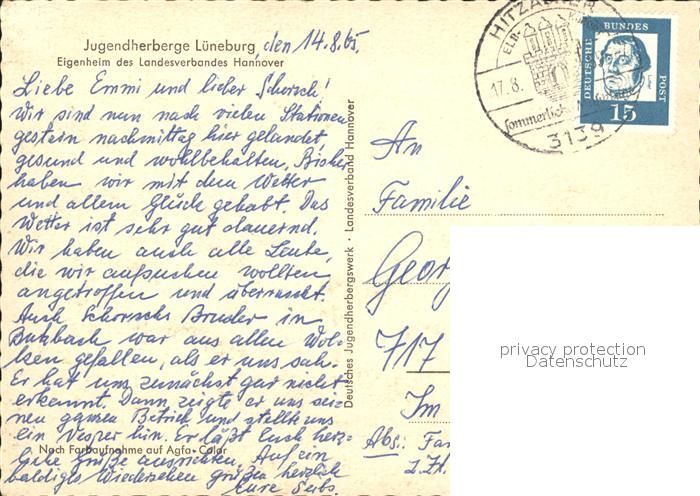 Jugendherberge Lüneburg
Eigenheim des Landesverbandes Hannover
den 14.8.65.
Liebe Emmi und lieber Schorsch!
Wir sind nun nach vielen Stationen
gestern nachmittag hier gelandet,
gesund und wohlbehalten. Bisher
haben wir mit dem Wetter
und allem Glück gehabt. Das
Wetter ist sehr gut dauernd.
Wir haben auch alle Leute,
die wir aufsuchen wollten
angetroffen und überrascht.
Auch Schorschs Bruder in
Butzbach war aus allen Wol-
ken gefallen, als er uns sah.
Er hat uns zunächst gar nicht
erkannt. Dann zeigte er uns sei-
nen ganzen Betrieb und stellte uns
ein Vesper hin. Er läßt Euch herz-
liche Grüße ausrichten. Auf ein
baldiges Wiedersehen grüßen herzlich
Eure Seibs.
Nach Farbaufnahme auf Agfa-Color
Deutsches Jugendherbergswerk · Landesverband Hannover
HITZACKER
ELB-
17.8.
sommerlich
3139
DEUTSCHE BUNDESPOST
15
An
Familie
Georg
717
Im
Abs: Fam
z.Zt.
privacy protection
Datenschutz